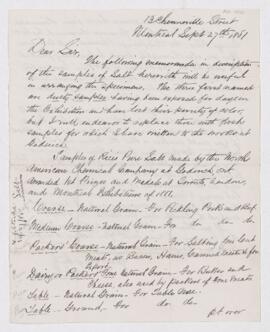 13 Chenneville Street
Montreal Sept 27th 1881
Dear Sir,
The following memoranda in description
of the samples of Salt herewith will be useful
in arranging the specimens. The three first named
are dusty samples having been exposed for days in
the Exhibition and have lost their purity of color
but I will endeavor to replace them with fresh
samples for which I have written to the works at
Goderich.
Samples of Rice's Pure Salt made by the North
American Chemical Company at Goderich, Ont
Awarded 1st Prizes and Medals at Toronto, London,
and Montreal Exhibitions of 1881.
Course - Natural Grain - For Pickling Pork and Beef
Medium Course - Natural Grain - For do do do
Packers' Course - Natural Grain - For Salting
Meats, as Bacon, Hams, Canned Meats for
Export
Dairy or Packers' Natural Grain - For Butter and
Cheese, also used by packers of fine Meats
Table - Natural Grain - For Table Use.
Table - Ground, For do do
over